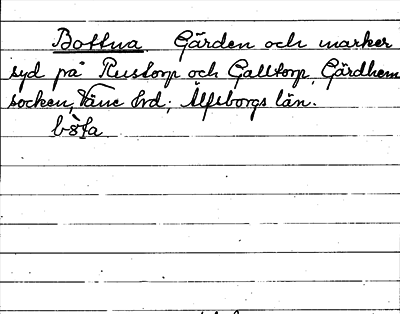 Bottna Gärden och marker
syd på Rustorp och Galltorp, Gärdhem
socken, Väne hrd; Älfsborgs län.